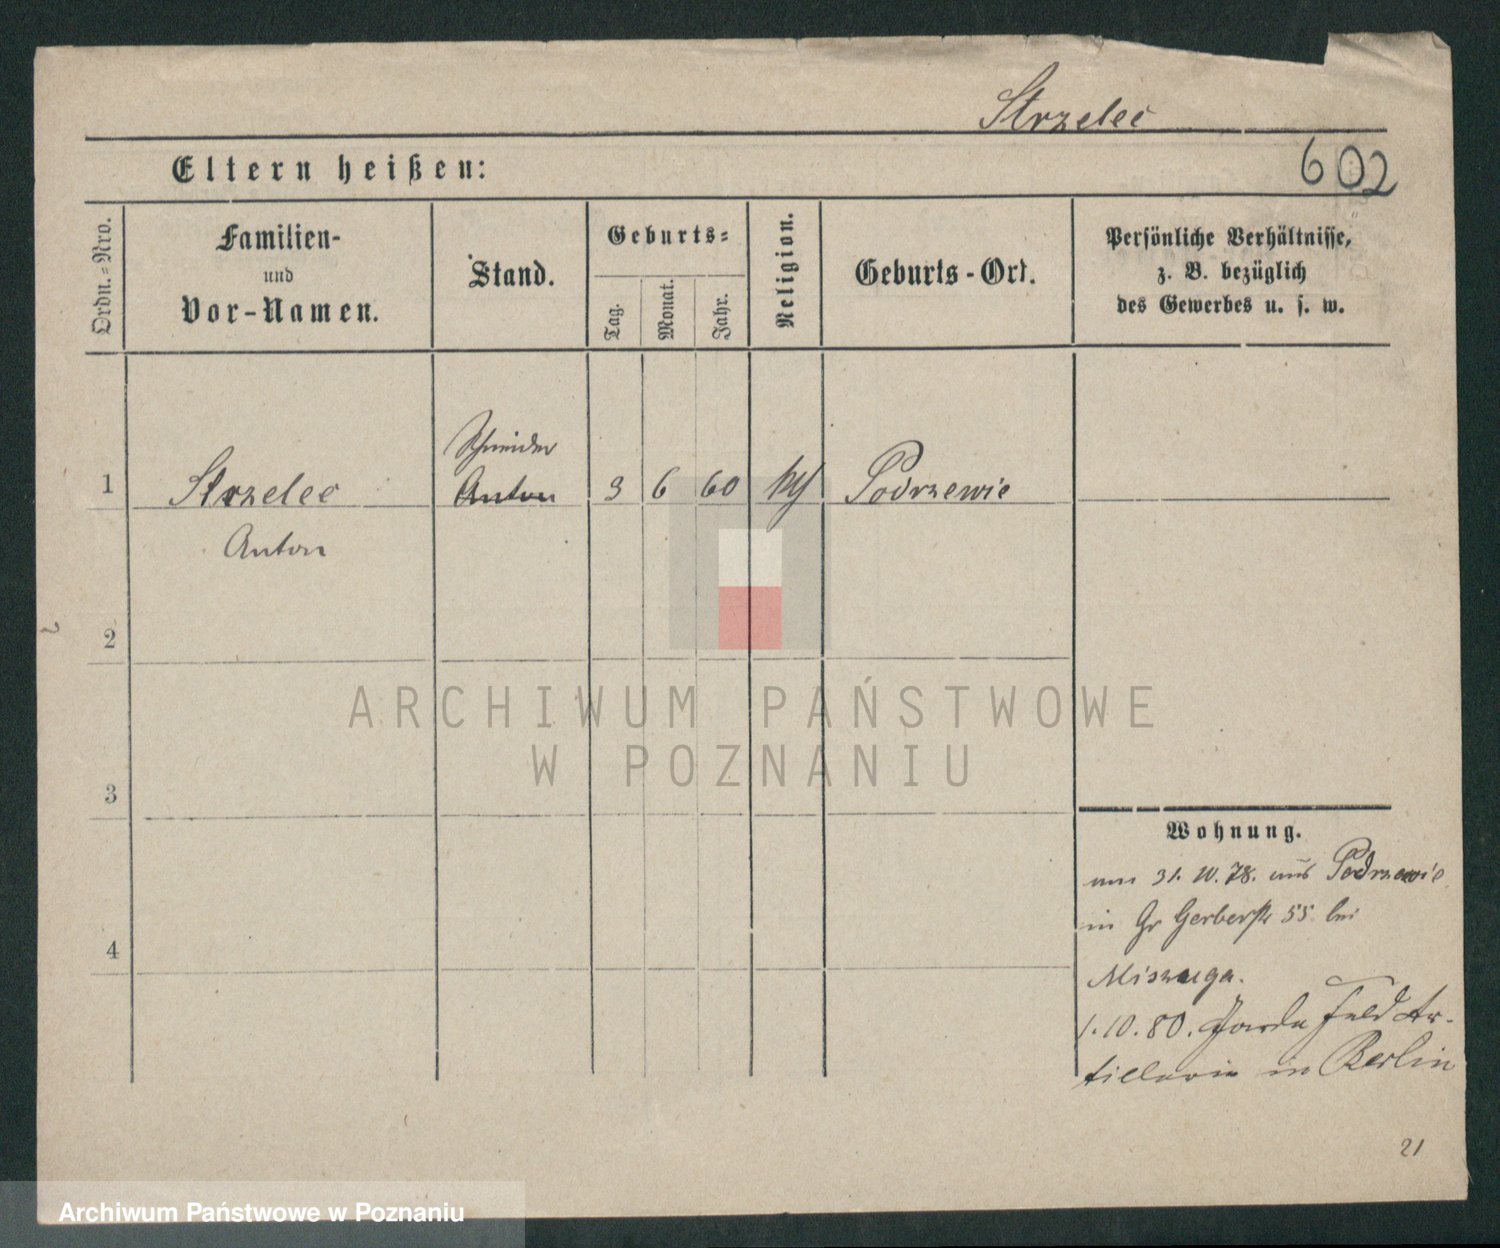 Strzelec
602
Eltern heißen:
Ordn.=Nro.
Familien-
und
Vor-Namen.
Stand.
Geburts=
Tag.
Monat.
Jahr.
Religion.
Geburts-Ort.
Persönliche Verhältnisse,
z. B. bezüglich
des Gewerbes u. s. w.
Schneider
1 Strzelec Anton 3 6 60 Podrzewie
Anton
2
3
4
Wohnung.
31. 10. 78. aus Podrzewie
in Gr Gerberstr 55 bei
1.10.80. Garde Feld Ar-
tillerie in Berlin
21
ARCHIWUM PAŃSTWOWE
W POZNANIU
Archiwum Państwowe w Poznaniu